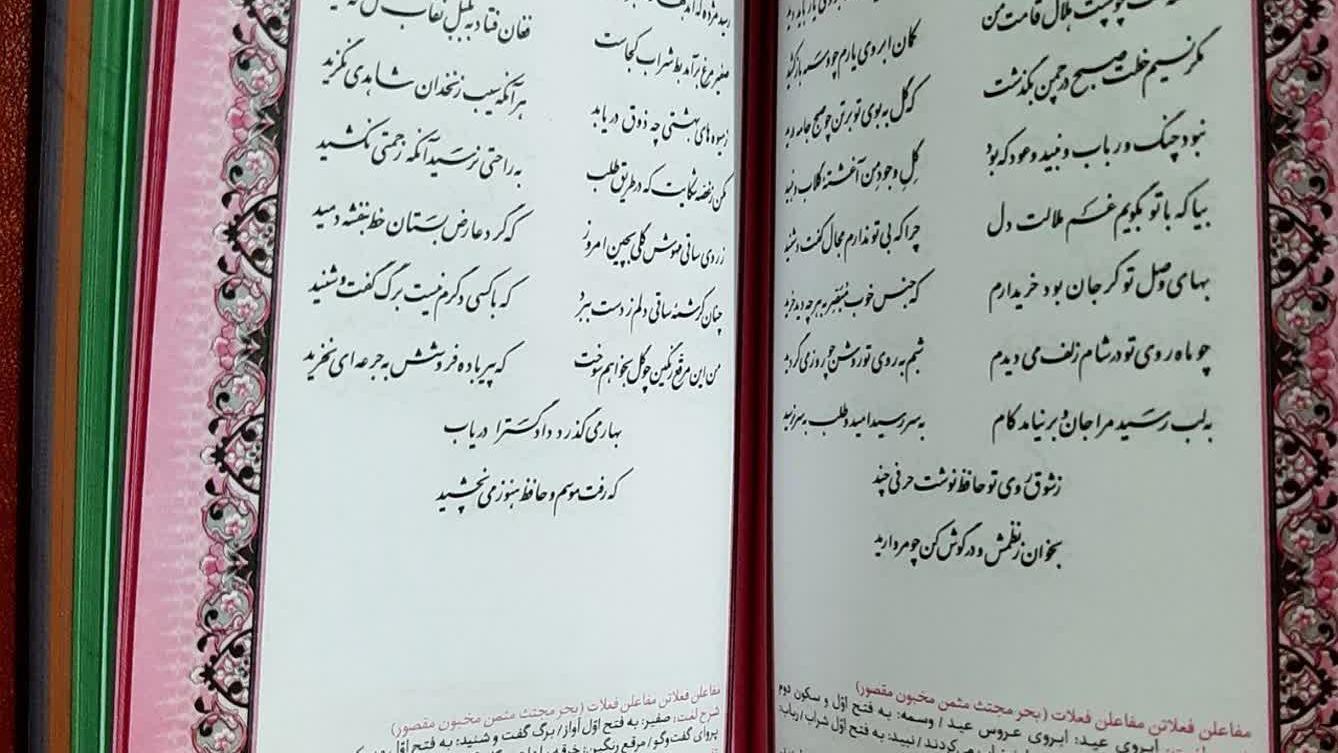 چو پشت هلال قامت من کمان ابروی یارم چو وسمه باز کشید
مگر نسیم خطت صبح در چمن بگذشت که گل به بوی تو بر تن چو صبح جامه درید
نبود چنگ و رباب و نبید و عود که بود گِلِ وجودِ من آغشتهٔ گلاب و نبید
بیا که با تو بگویم غم ملالت دل چرا که بی تو ندارم مجال گفت و شنید
بهای وصل تو گر جان بود خریدارم که جنس خوب مبصّر به هر چه دید خرید
چو ماه روی تو در شام زلف می دیدم شبم به روی تو روشن چو روز می گردید
به لب رسید مرا جان و بر نیامد کام به سر رسید امید و طلب به سر نرسید
ز شوق روی تو حافظ نوشت حرفی چند
بخوان ز نظمش و در گوش کن چو مروارید
مفاعلن فعلاتن مفاعلن فعلات (بحر مجتث مثمن مخبون مقصور)
ابروی عید: ابروی عروس عید / وسمه: به فتح اوّل و سکون دوم
نبید: به فتح اوّل شراب / رباب:
رسید مژده که آمد
صفیر مرغ برآمد بط شراب کجاست فغان فتاد به بلبل نقاب گل که کشید
ز میوه های بهشتی چه ذوق دریابد هر آنکه سیب زنخدان شاهدی نگزید
مکن ز غصه شکایت که در طریق طلب به راحتی نرسید آنکه زحمتی نکشید
ز روی ساقی مهوش گلی بچین امروز که گرد عارض بستان خط بنفشه دمید
چنان کرشمهٔ ساقی دلم ز دست ببرد که با کسی دگرم نیست برگ گفت و شنید
من این مرقع رنگین چو گل بخواهم سوخت که پیر باده فروشش به جرعه ای نخرید
بهار می گذرد دادگسترا دریاب
که رفت موسم و حافظ هنوز می نچشید
مفاعلن فعلاتن مفاعلن فعلات (بحر مجتث مثمن مخبون مقصور)
شرح لغت: صفیر: به فتح اوّل آواز / برگ گفت و شنید: به فتح اوّل
پروای گفت‌وگو / مرقع رنگین: خرقه